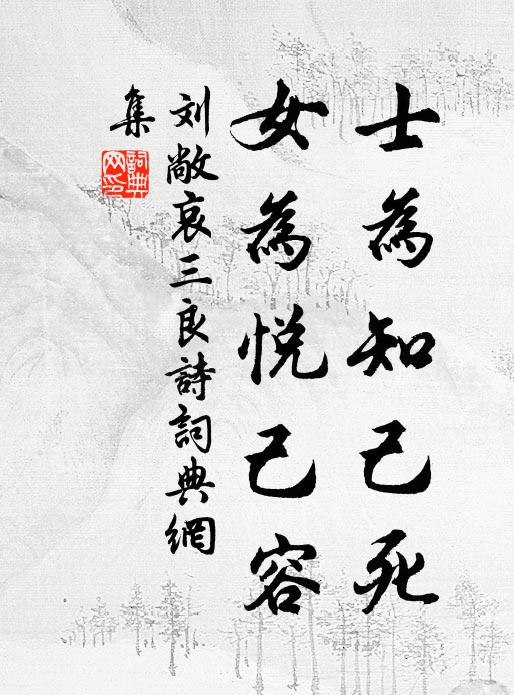 士為知己死
女為悅己容
刘敞哀三良詩詞典網
集
詞典
网印